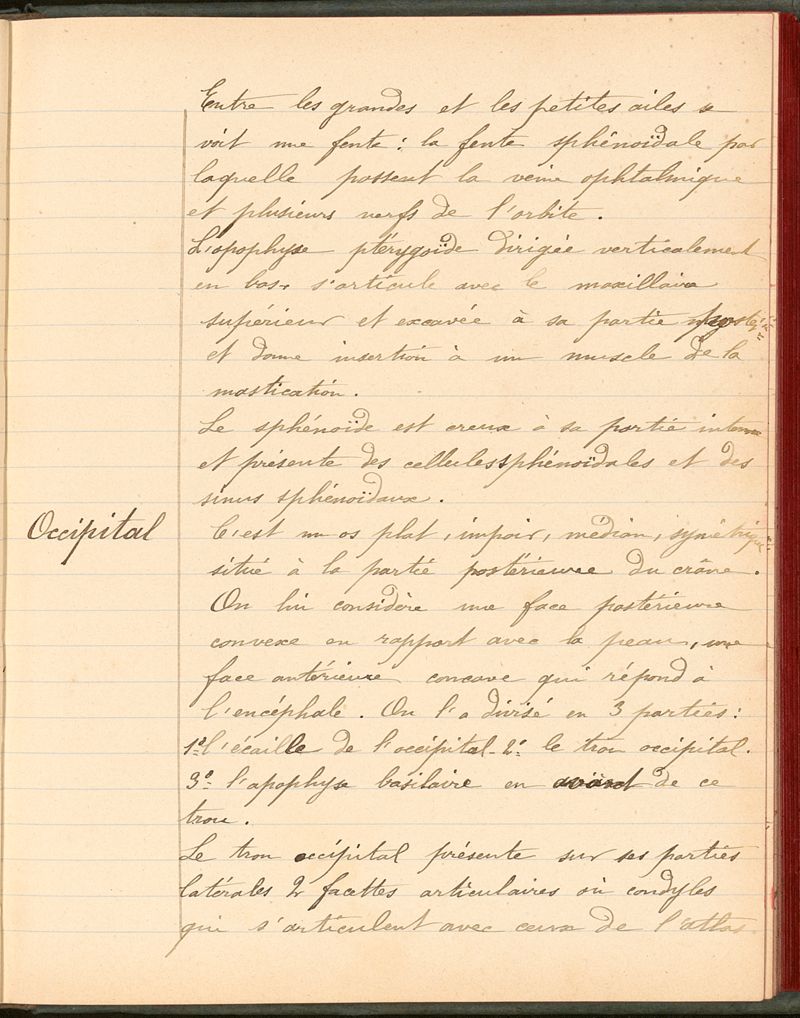 Entre les grandes et les petites ailes se
voit une fente : la fente sphénoïdale par
laquelle passent la veine ophtalmique
et plusieurs nerfs de l'orbite.
L'apophyse ptérygoïde dirigée verticalement
en bas, s'articule avec le maxillaire
supérieur et excavée à sa partie
et donne insertion à un muscle de la
mastication.
Le sphénoïde est creux à sa partie interne
et présente des cellules sphénoïdales et des
sinus sphénoïdaux.
Occipital
C'est un os plat, impair, médian, symétrique
situé à la partie postérieure du crâne.
On lui considère une face postérieure
convexe en rapport avec la peau, une
face antérieure concave qui répond à
l'encéphale. On l'a divisé en 3 parties :
1º l'écaille de l'occipital - 2º le trou occipital.
3º l'apophyse basilaire en avant de ce
trou.
Le trou occipital présente sur ses parties
latérales 2 facettes articulaires ou condyles
qui s'articulent avec ceux de l'atlas.